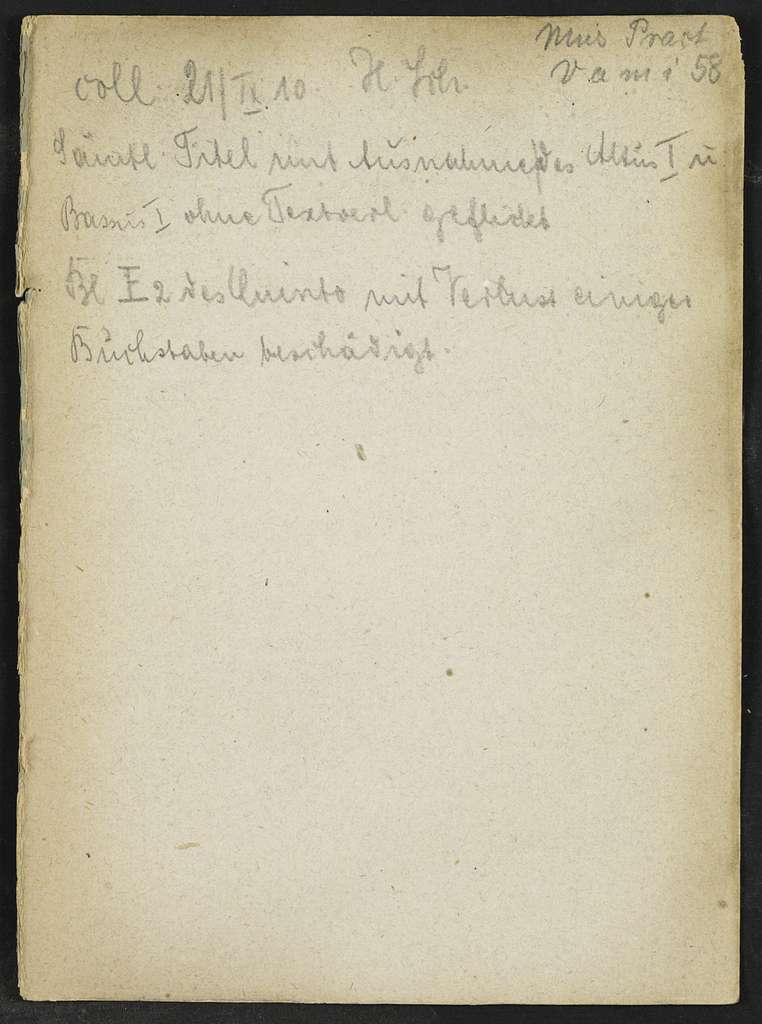 Mus Pract
Vami 58
coll. 21/IX 10 H.
Sämtl Titel mit Ausnahme des Altus I u
Bassus I ohne Textverl. geflickt
Bl E2 des Quinto mit Verlust einiger
Buchstaben beschädigt.